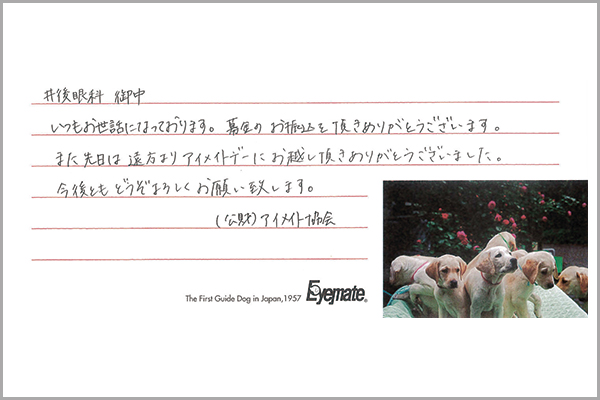 井後眼科 御中
いつもお世話になっております。募金のお振込を頂きありがとうございます。
また先日は遠方よりアイメイトデーにお越し頂きありがとうございました。
今後ともどうぞよろしくお願い致します。
(公財)アイメイト協会
The First Guide Dog in Japan,1957 Eyemate®